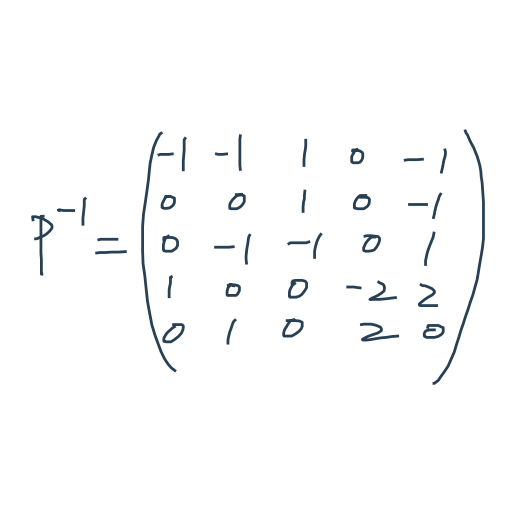 P⁻¹ = ( -1 -1 1 0 -1
0 0 1 0 -1
0 -1 -1 0 1
1 0 0 -2 2
0 1 0 2 0 )